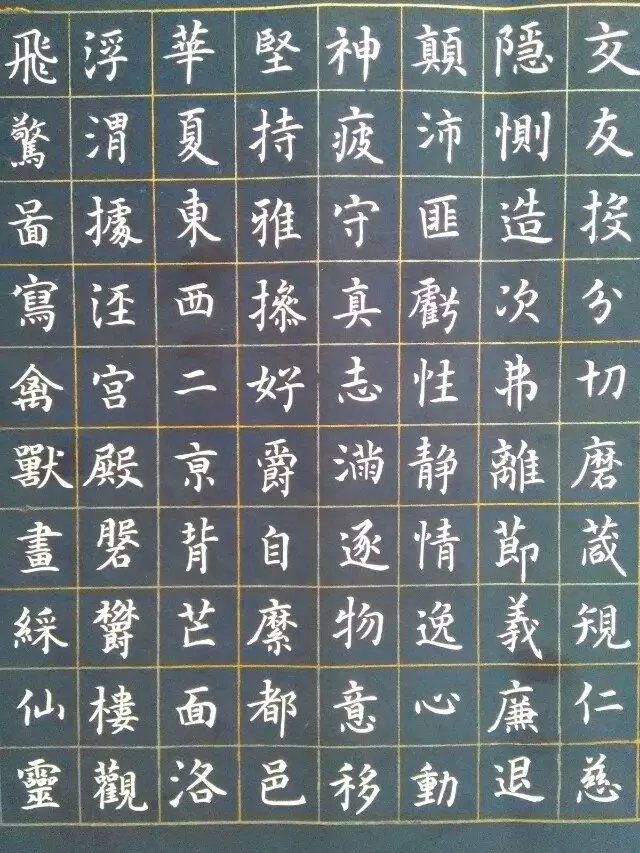 交友投分切磨箴規仁慈
隱惻造次弗離節義廉退
顛沛匪虧性静情逸心動
神疲守真志滿逐物意移
堅持雅操好爵自縻都邑
華夏東西二亰背芒面洛
浮渭據涇宮殿磐鬱樓觀
飛驚啚寫禽獸畫綵仙靈